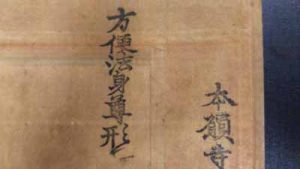 本願寺
方便法身尊形